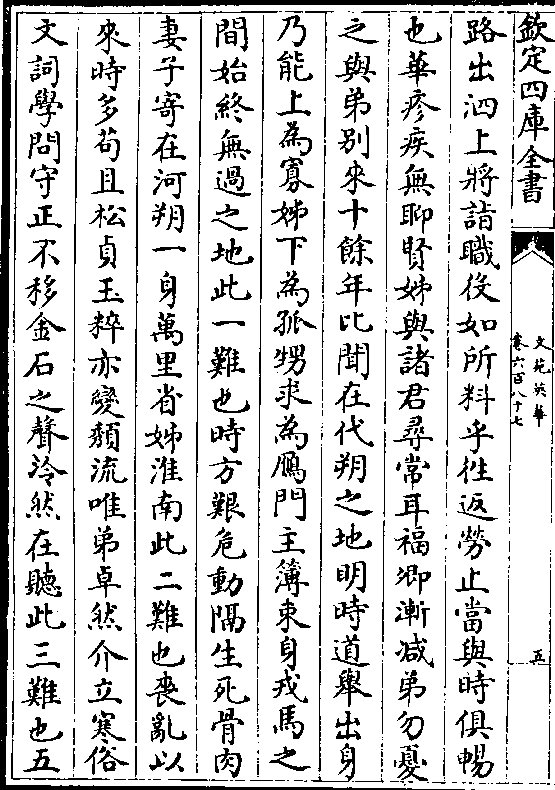 欽定四庫全書
文苑英華
卷六百八十七
五
路出泗上將詣職役如所料乎往返勞止當與時俱暢
也華疹疾無聊賢姊與諸君尋常耳福卿漸减弟勿憂
之與弟别來十餘年比聞在代朔之地明時道舉出身
乃能上為寡姊下為孤甥求為鴈門主簿束身戎馬之
間始終無過之地此一難也時方艱危動隔生死骨肉
妻子寄在河朔一身萬里省姊淮南此二難也喪亂以
來時多茍且松貞玉粹亦變頽流唯弟卓然介立寒俗
文詞學問守正不移金石之聲泠然在聽此三難也五